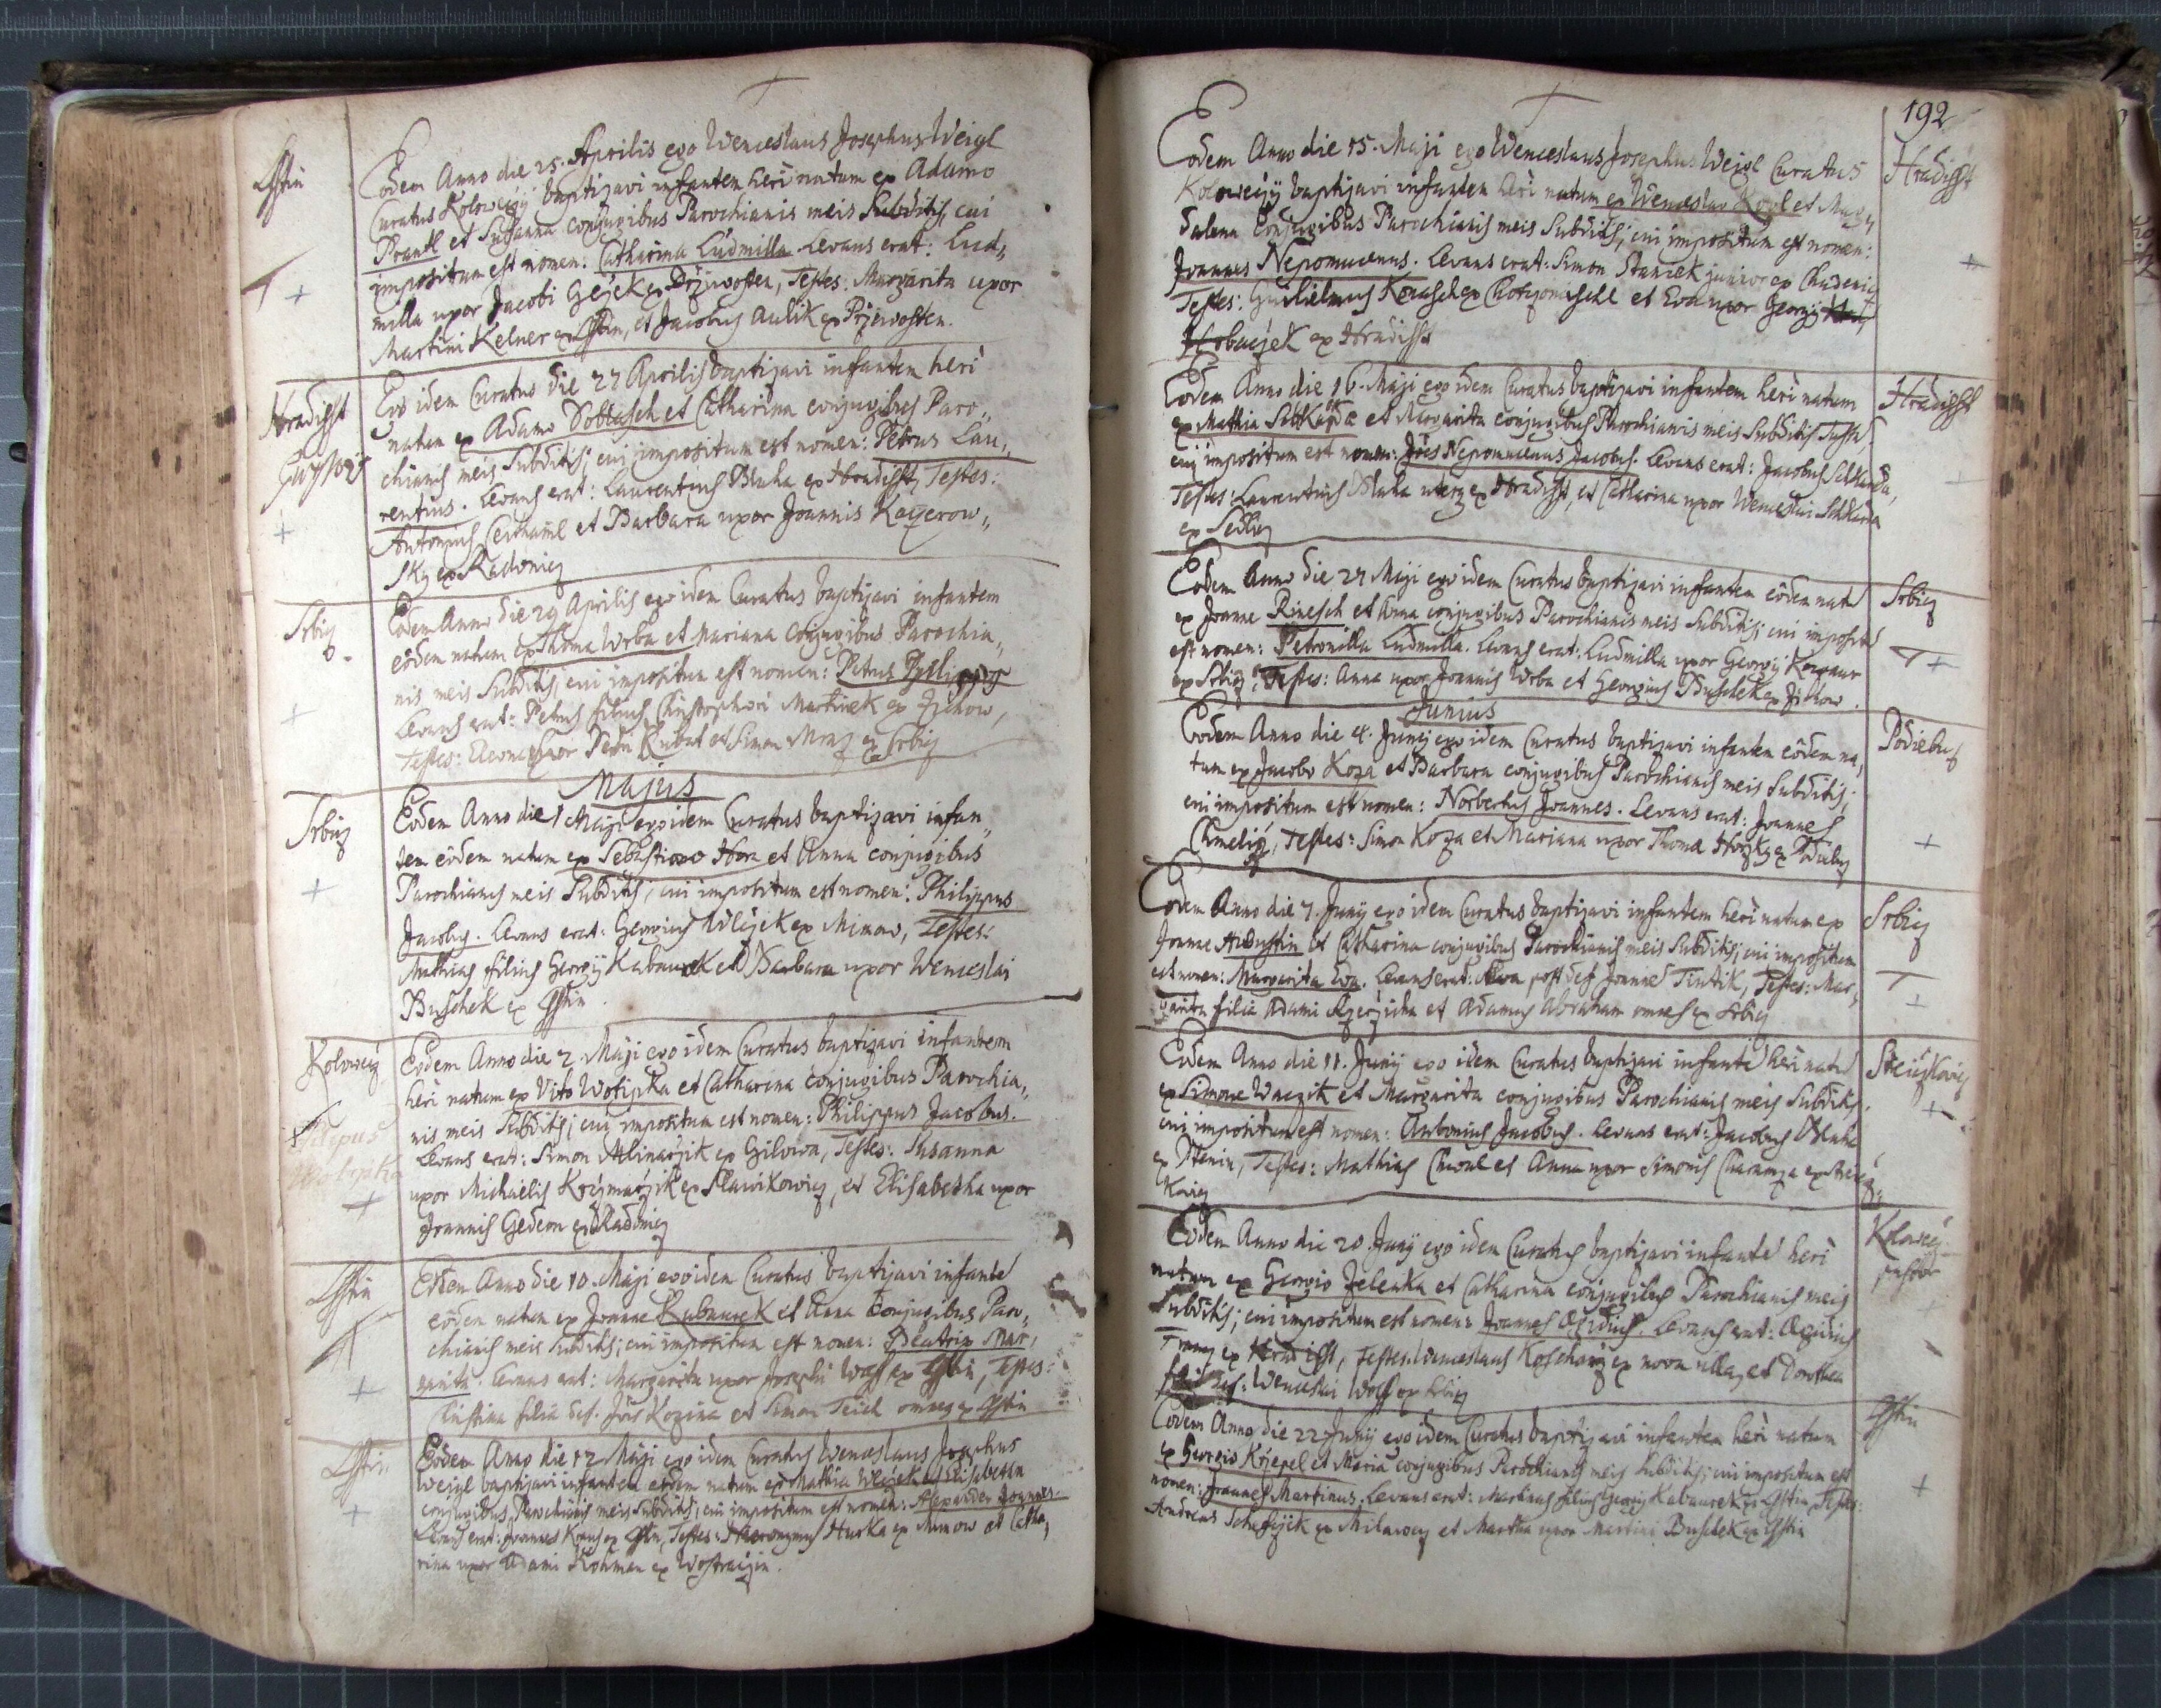 Lstin
Eodem Anno die 25. Aprilis ego Wenceslaus Josephus Weigl
Curatus Kolowecij baptizavi infantem heri natum ex Adamo
Prantl et Susanna conjugibus Parochianis meis Subditis, cui
impositum est nomen: Catharina Ludmilla. Levans erat: Lud„
milla uxor Jacobi Gegek ex Przivosten, Testes: Margarita uxor
Martini Kelner ex Lstin, et Jacobus Aulik ex Przivosten.
Hradisst
Ego idem Curatus die 27 Aprilis baptizavi infantem heri
natum ex Adamo Doblasch et Catharina conjugibus Paro„
chianis meis Subditis; cui impositum est nomen: Petrus Lau„
rentius. Levans erat: Laurentius Bluha ex Hradisst, Testes:
Antonius et Barbara uxor Joannis Kayerow„
sky ex Radonicz
Srbicz
Eodem Anno die 29 Aprilis ego idem Curatus baptizavi infantem
eodem natum ex Thoma Wrba et Mariana conjugibus Parochia„
nis meis Subditis, cui impositum est nomen: Petrus
Levans erat: Petrus filius Christophori Martinek ex Zichow,
Testes: uxor Petri Kubat et Simon Mraz ex Srbicz
Majus
Srbicz
Eodem Anno die 1 Maji ego idem Curatus baptizavi infan„
tem eodem natum ex Sebastiano Hora et Anna conjugibus
Parochianis meis Subditis, cui impositum est nomen: Philippus
Jacobus. Levans erat: Georgius Wlczek ex Mimow, Testes:
Mathias filius Georgij Kabaurek et Barbara uxor Wenceslai
Buschek ex Lstin.
Kolowecz
Filipus
Wotipka
Eodem Anno die 2. Maji ego idem Curatus baptizavi infantem
heri natum ex Vito Wotipka et Catharina conjugibus Parochia„
nis meis Subditis; cui impositum est nomen: Philippus Jacobus.
Levans erat: Simon Mlinarzik ex Gilowa, Testes: Susanna
uxor Michaelis Krzymarzik ex Slawikowicz, et Elisabetha uxor
Joannis Gedeon ex Radonicz
Lstin
Eodem Anno die 10. Maji ego idem Curatus baptizavi infante
eodem natum ex Joanne Kubaurek et Anna Conjugibus Paro„
chianis meis Subditis; cui impositum est nomen: Beatrix Mar„
garita. Levans erat: Margarita uxor Josephi ex Lstin, Testes:
Christina filia def. Jois Kozina et Simon Teichl omnes ex Lstin
Lstin
Eodem Anno die 12 Maji ego idem Curatus Wenceslaus Josephus
Weigl baptizavi infantem eodem natum ex Mathia et Elisabetha
conjugibus, Parochianis meis Subditis; cui impositum est nomen: Alexander Joannes.
Levans erat: Joannes Kraus ex Lstin, Testes: Hieronymus Hurka ex Mimow et Catha„
rina uxor Adami Kohman ex Wostraczin.
192
Hradisst
Eodem Anno die 15. Maji ego Wenceslaus Josephus Weigl Curatus
Kolowecij baptizavi infantem heri natum ex Wenceslao Kogl et Mag„
dalena Conjugibus Parochianis meis Subditis; cui impositum est nomen:
Joannes Nepomucenus. Levans erat: Simon Staniek junior ex Chudenicz
Testes: Guilielmus et Eva uxor Georgij
Hrbaczek ex Hradisst
Hradisst
Eodem Anno die 16. Maji ego idem Curatus baptizavi infantem heri natum
ex Mathia et Margarita conjugibus Parochianis meis Subditis
cui impositum est nomen: Jões Nepomucenus Jacobus. Levans erat: Jacobus
Testes: Laurentius Bluha uterq ex Hradisst, et Catharina uxor Wenceslai
ex Sedlicz
Srbicz
Eodem Anno die 27 Maji ego idem Curatus baptizavi infantem eodem natu
ex Joanne Rinesch et Anna conjugibus Parochianis meis Subditis; cui imposit
est nomen: Petronilla Ludmilla. Levans erat: Ludmilla uxor Georgij
ex Srbicz, Testes: Anna uxor Joannis Wrba et Georgius Buschek ex Zichow.
Junius
Podiebus
Eodem Anno die 4. Junij ego idem Curatus baptizavi infantem eodem na„
tum ex Jacobo Koza et Barbara conjugibus Parochianis meis Subditis;
cui impositum est nomen: Norbertus Joannes. Levans erat: Joannes
Chmelirz, Testes: Simon Koza et Mariana uxor Thomæ Horzky ex Podiebus
Srbicz
Eodem Anno die 7. Junij ego idem Curatus baptizavi infantem heri natum ex
Joanne Augustin et Catharina conjugibus Parochianis meis Subditis; cui impositum
est nomen: Margarita Eva. Levans erat: Eva post def. Joanne Tintik, Testes: Mar„
garita filia Adami et Adamus Abraham omnes ex Srbicz
Strziczkovicz
Eodem Anno die 11. Junij ego idem Curatus baptizavi infante heri natu
ex Simone Waczik et Margarita conjugibus Parochianis meis Subditis.
cui impositum est nomen: Antonius Jacobus. Levans erat: Jacobus Bluha
ex, Testes: Mathias et Anna uxor Simonis Charamza ex Strzicz„
kovicz
Kolowecz
Eodem Anno die 20. Junij ego idem Curatus baptizavi infante heri
natum ex Georgio Jelenka et Catharina conjugibus Parochianis meis
Subditis; cui impositum est nomen: Joannes Ægidius. Levans erat: Ægidius
ex Hradisst, Testes: Wenceslaus ex nova villa, et Dorothea
Wenceslai Wolf ex Srbicz
Lstin
Eodem Anno die 22 Junij ego idem Curatus baptizavi infantem heri natum
ex Georgio Krzepel et Maria conjugibus Parochianis meis Subditis; cui impositum est
nomen: Joannes Martinus. Levans erat: Martinus filius Georgij Kabaurek ex Lstin, Testes:
Andreas ex Milawcz et Martha uxor Martini Buschek ex Lstin